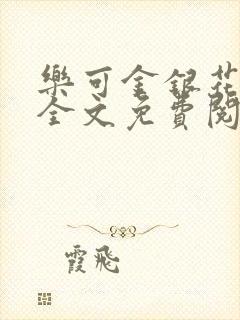 樂可金銀花
全文免費閱
霞飛